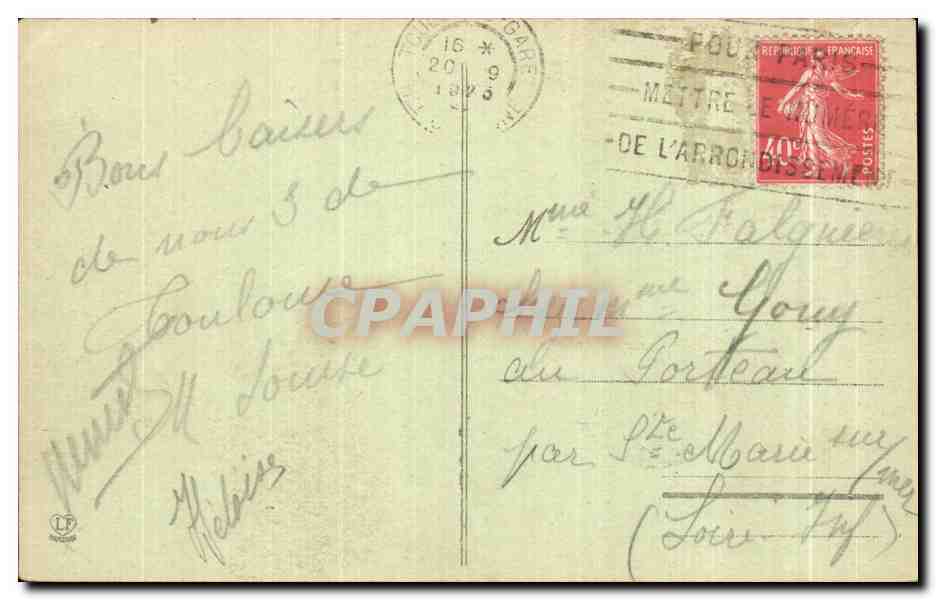 TOULOUSE-GARE
16 *
20 - 9
1926
POUR PARIS
METTRE LE NUMÉRO
DE L'ARRONDISSEMENT
REPUBLIQUE FRANÇAISE
40 c
POSTES
Bons baisers
de nous 3 de
Toulouse
M Louise
Héloïse
Mme H. Falguière
chez Mme Gouy
au Porteau
par Ste Marie sur
mer
(Loire Inf)
CPAPHIL
LF